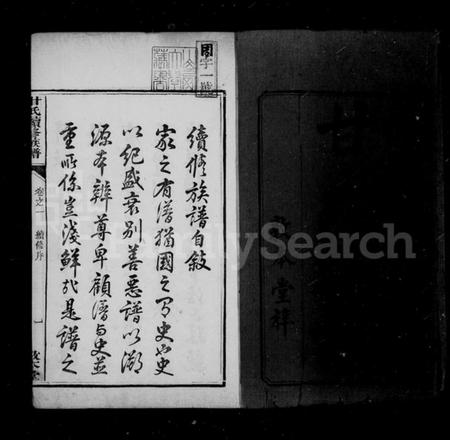 續修族譜自敘
家之有譜猶國之有史也史
以紀盛衰別善惡譜以溯
源本辨尊卑顧譜與史並
重所係豈淺鮮哉是譜之
甘氏續修族譜
卷之一 續修序
一
國字一號
FamilySearch
甘
堂梓